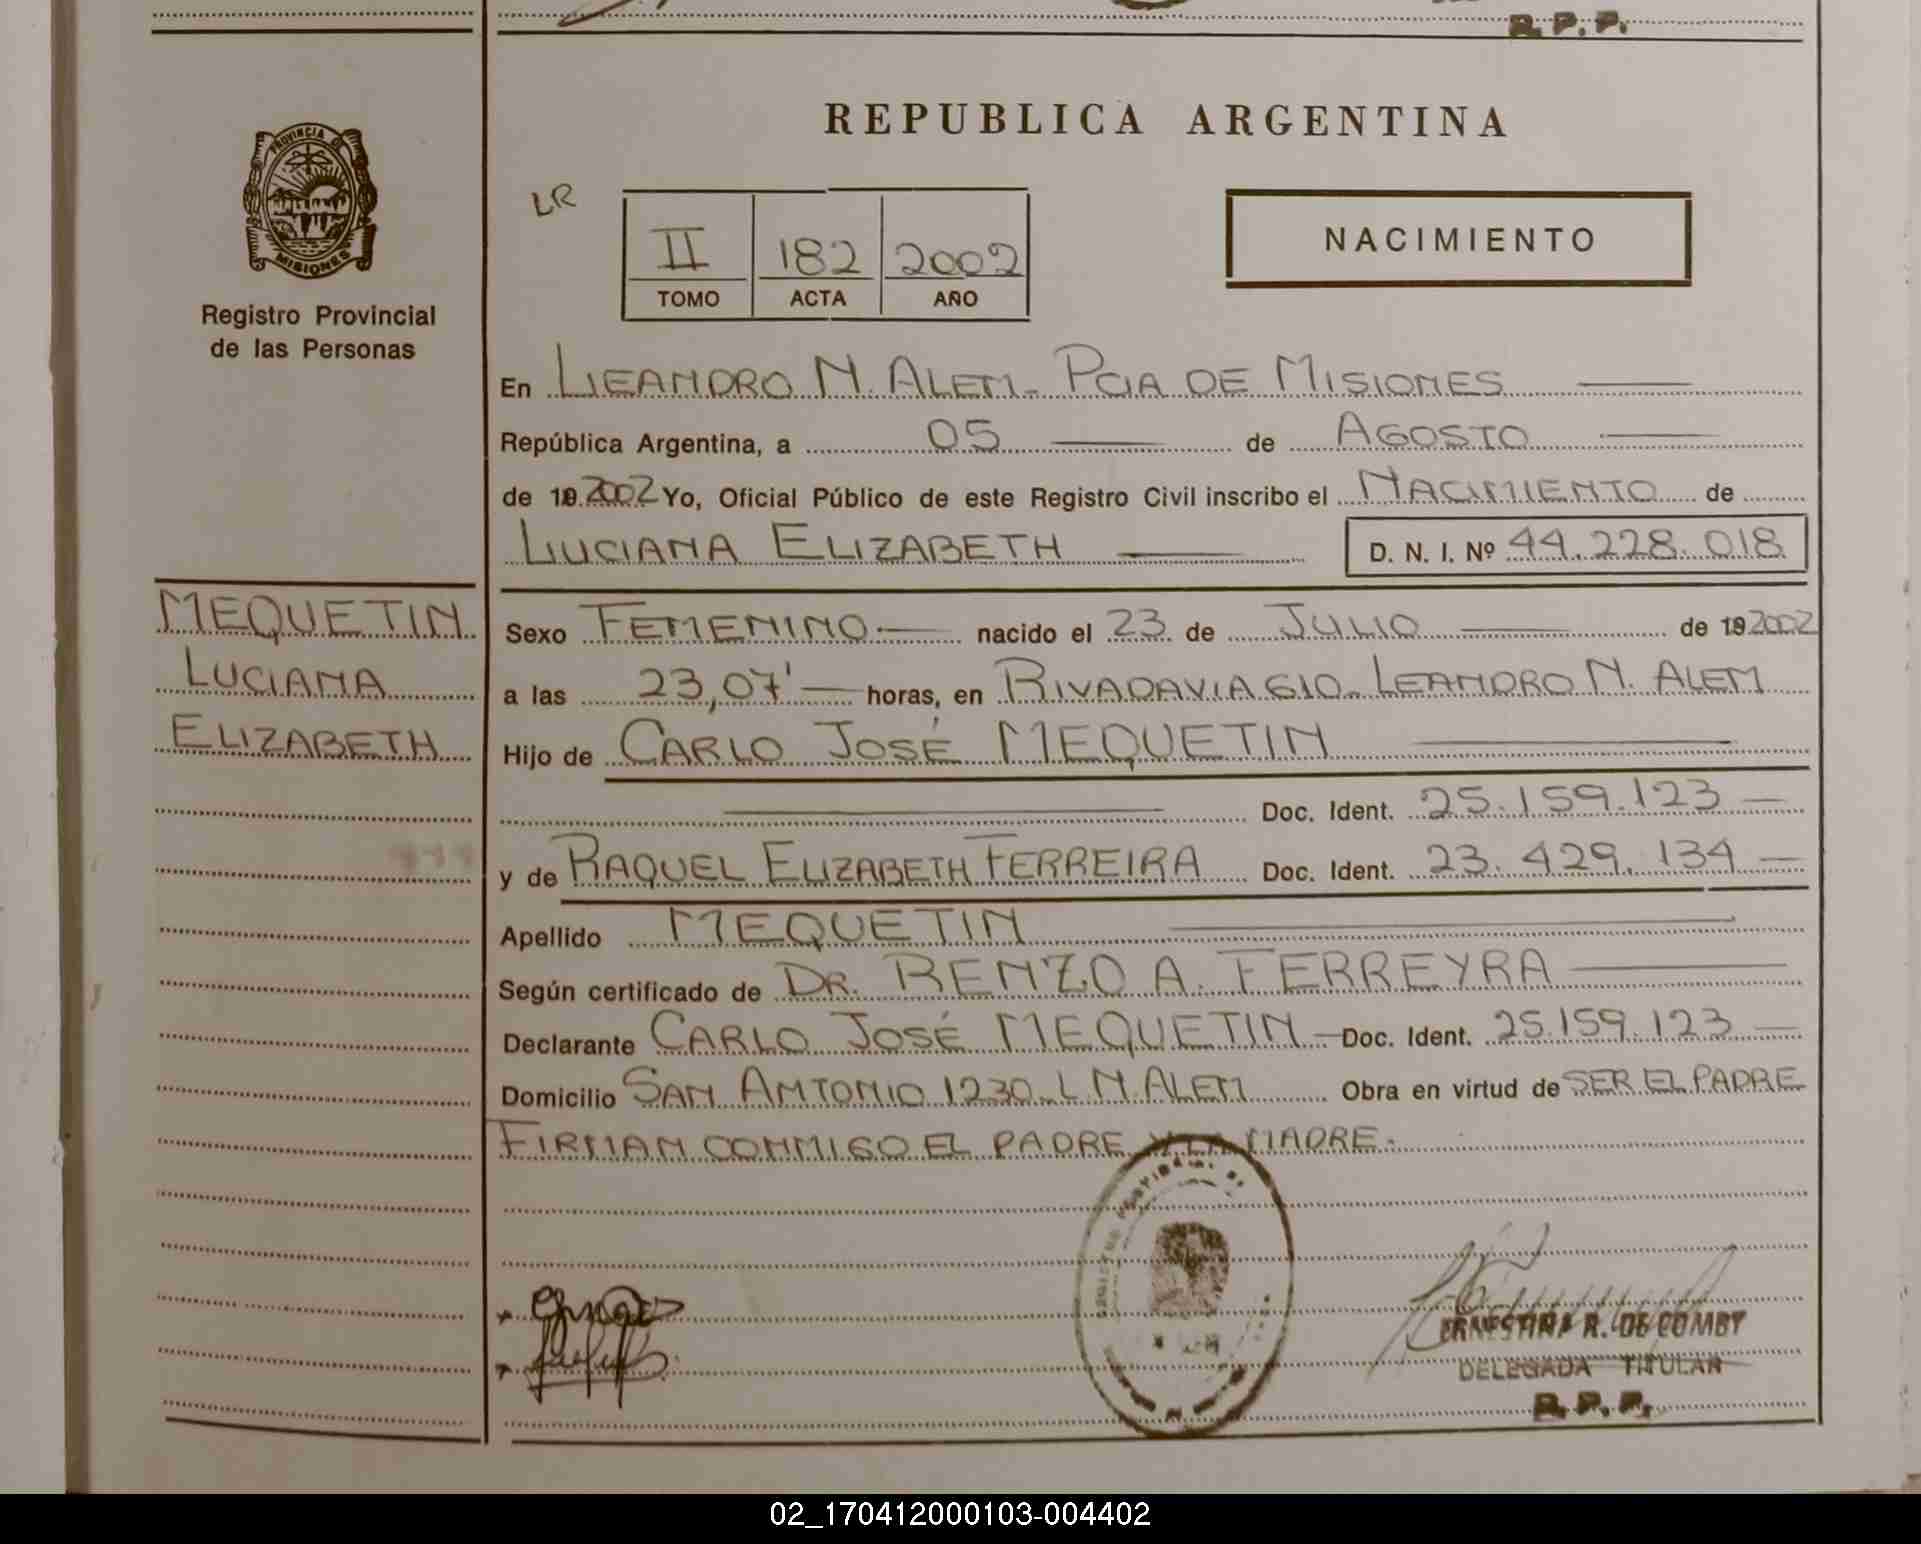 R. P. P.
PROVINCIA DE
MISIONES
Registro Provincial
de las Personas
REPUBLICA ARGENTINA
LR
II 182 2002
TOMO ACTA AÑO
NACIMIENTO
En LEANDRO N. ALEM - PCIA DE MISIONES
República Argentina, a 05 de AGOSTO
de 19 2002 Yo, Oficial Público de este Registro Civil inscribo el NACIMIENTO de
LUCIANA ELIZABETH D. N. I. Nº 44.228.018
MEQUETIN
LUCIANA
ELIZABETH
Sexo FEMENINO nacido el 23 de JULIO de 19 2002
a las 23,07' horas, en RIVADAVIA 610 - LEANDRO N. ALEM
Hijo de CARLO JOSÉ MEQUETIN
Doc. Ident. 25.159.123
y de RAQUEL ELIZABETH FERREIRA Doc. Ident. 23.429.134
Apellido MEQUETIN
Según certificado de DR. RENZO A. FERREYRA
Declarante CARLO JOSÉ MEQUETIN Doc. Ident. 25.159.123
Domicilio SAN ANTONIO 1230 - L.N.ALEM Obra en virtud de SER EL PADRE
FIRMAN CONMIGO EL PADRE Y LA MADRE.
ERNESTINA R. DE COMBY
DELEGADA TITULAR
R. P. P.
02_170412000103-004402